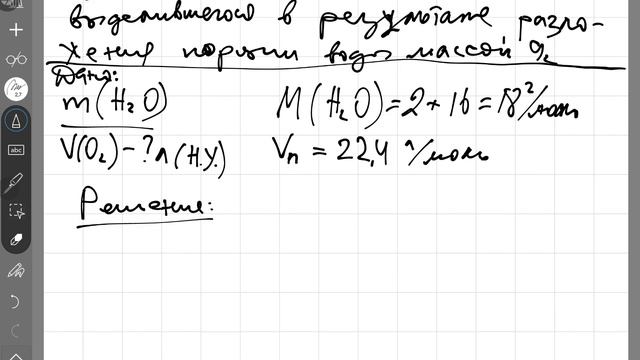 выделившегося в результате разло-
жения порции воды массой 9г
Дано:
m(H₂O)
M(H₂O)=2+16=18г/моль
V(O₂)-?л(н.у.)
Vn = 22,4 л/моль
Решение:
abc